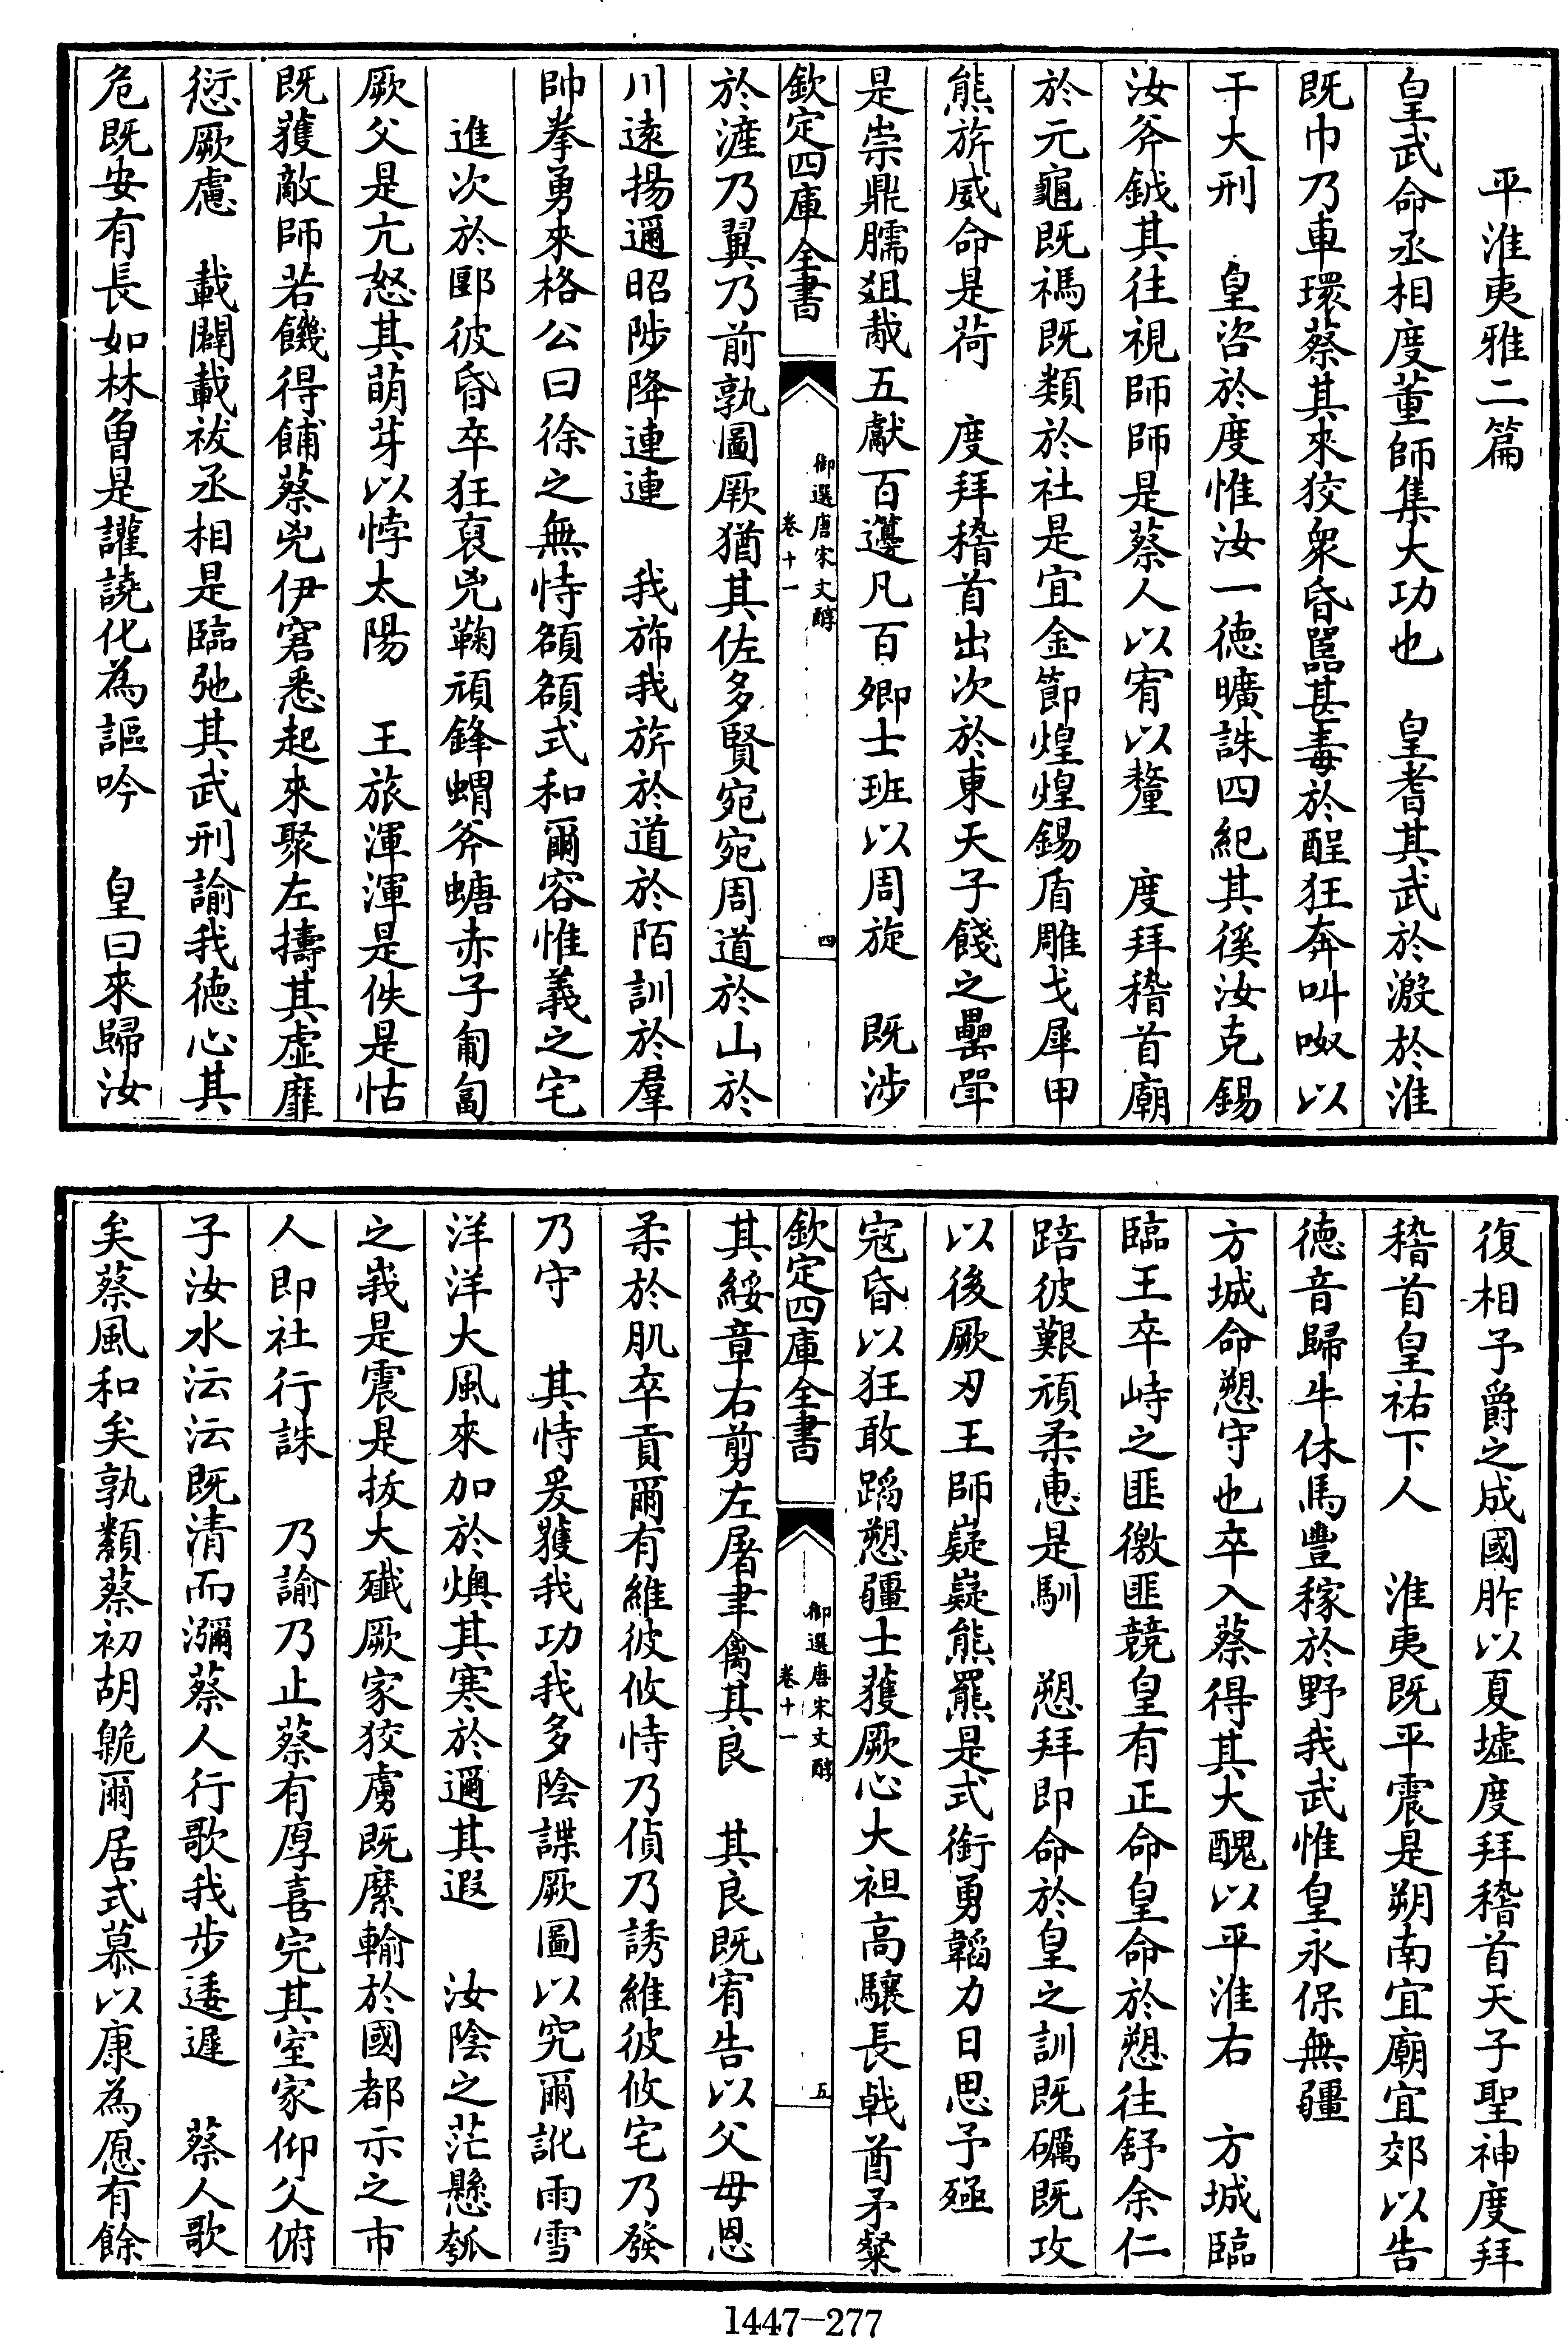 平淮夷雅二篇
皇武命丞相度董師集大功也　皇耆其武於澱於淮
既巾乃車環蔡其來狡衆昏嚚甚毒於酲狂奔叫呶以
干大刑　皇咨於度惟汝一德曠誅四紀其徯汝克錫
汝斧鉞其往視師師是蔡人以宥以釐　度拜稽首廟
於元龜既禡既類於社是宜金節煌煌錫盾雕戈犀甲
熊旂威命是荷　度拜稽首出次於東天子餞之罍斝
是崇鼎臑俎胾五獻百籩凡百卿士班以周旋　既涉
欽定四庫全書
御選唐宋文醇
卷十一
四
於滻乃翼乃前孰圖厥猶其佐多賢宛宛周道於山於
川遠揚邇昭陟降連連　我斾我旂於道於陌訓於羣
帥拳勇來格公曰徐之無恃頟頟式和爾容惟義之宅
進次於郾彼昏卒狂裒兇鞠頑鋒蝟斧螗赤子匍匐
厥父是亢怒其萌芽以悖太陽　王旅渾渾是佚是怙
既獲敵師若饑得餔蔡兇伊窘悉起來聚左擣其虛靡
愆厥慮　載闢載祓丞相是臨弛其武刑諭我德心其
危既安有長如林曾是讙譊化為謳吟　皇曰來歸汝
復相予爵之成國胙以夏墟度拜稽首天子聖神度拜
稽首皇祐下人　淮夷既平震是朔南宜廟宜郊以告
德音歸牛休馬豐稼於野我武惟皇永保無疆
方城命愬守也卒入蔡得其大醜以平淮右　方城臨
臨王卒峙之匪徼匪競皇有正命皇命於愬往舒余仁
踣彼艱頑柔惠是馴　愬拜即命於皇之訓既礪既攻
以後厥刃王師嶷嶷熊羆是式銜勇韜力日思予殛
寇昏以狂敢蹈愬疆士獲厥心大袒高驤長戟酋矛粲
欽定四庫全書
御選唐宋文醇
卷十一
五
其綏章右剪左屠聿禽其良　其良既宥告以父母恩
柔於肌卒貢爾有維彼攸恃乃偵乃誘維彼攸宅乃發
乃守　其恃爰獲我功我多陰諜厥圖以究爾訛雨雪
洋洋大風來加於燠其寒於邇其遐　汝陰之茫懸瓠
之峩是震是拔大殲厥家狡虜既縻輸於國都示之市
人即社行誅　乃諭乃止蔡有厚喜完其室家仰父俯
子汝水沄沄既清而瀰蔡人行歌我步逶遲　蔡人歌
矣蔡風和矣孰纇蔡初胡甈爾居式慕以康為愿有餘
1447—277